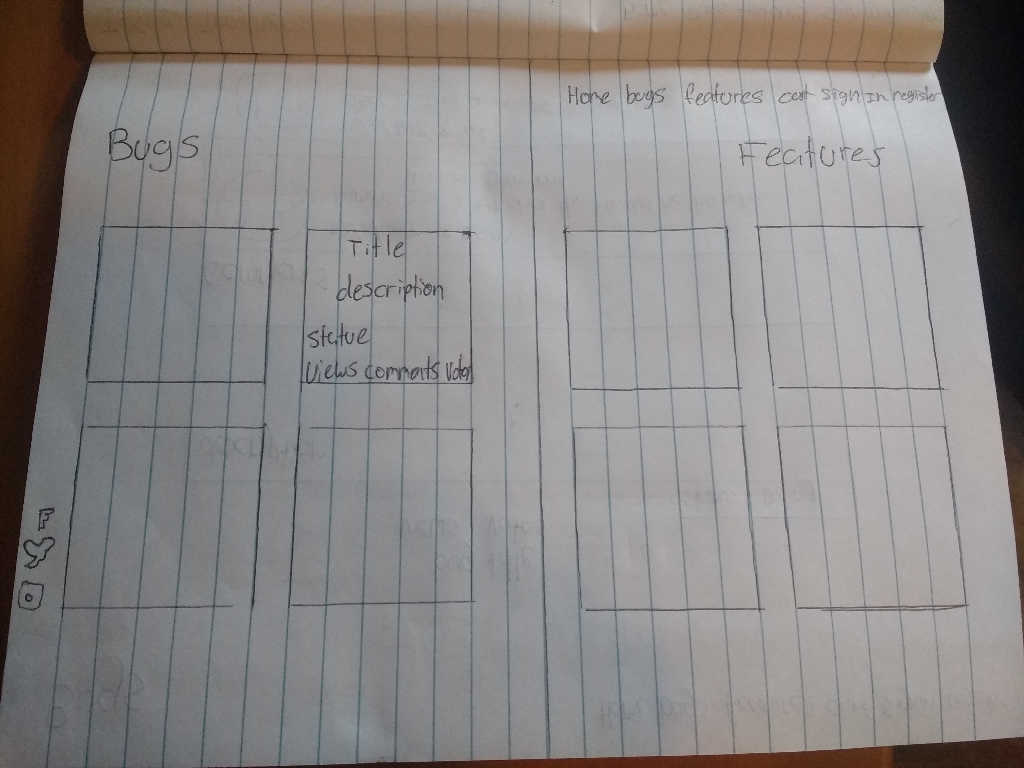 Home bugs features cart sign in register
Bugs
Features
Title
description
statue
views comments votes
F